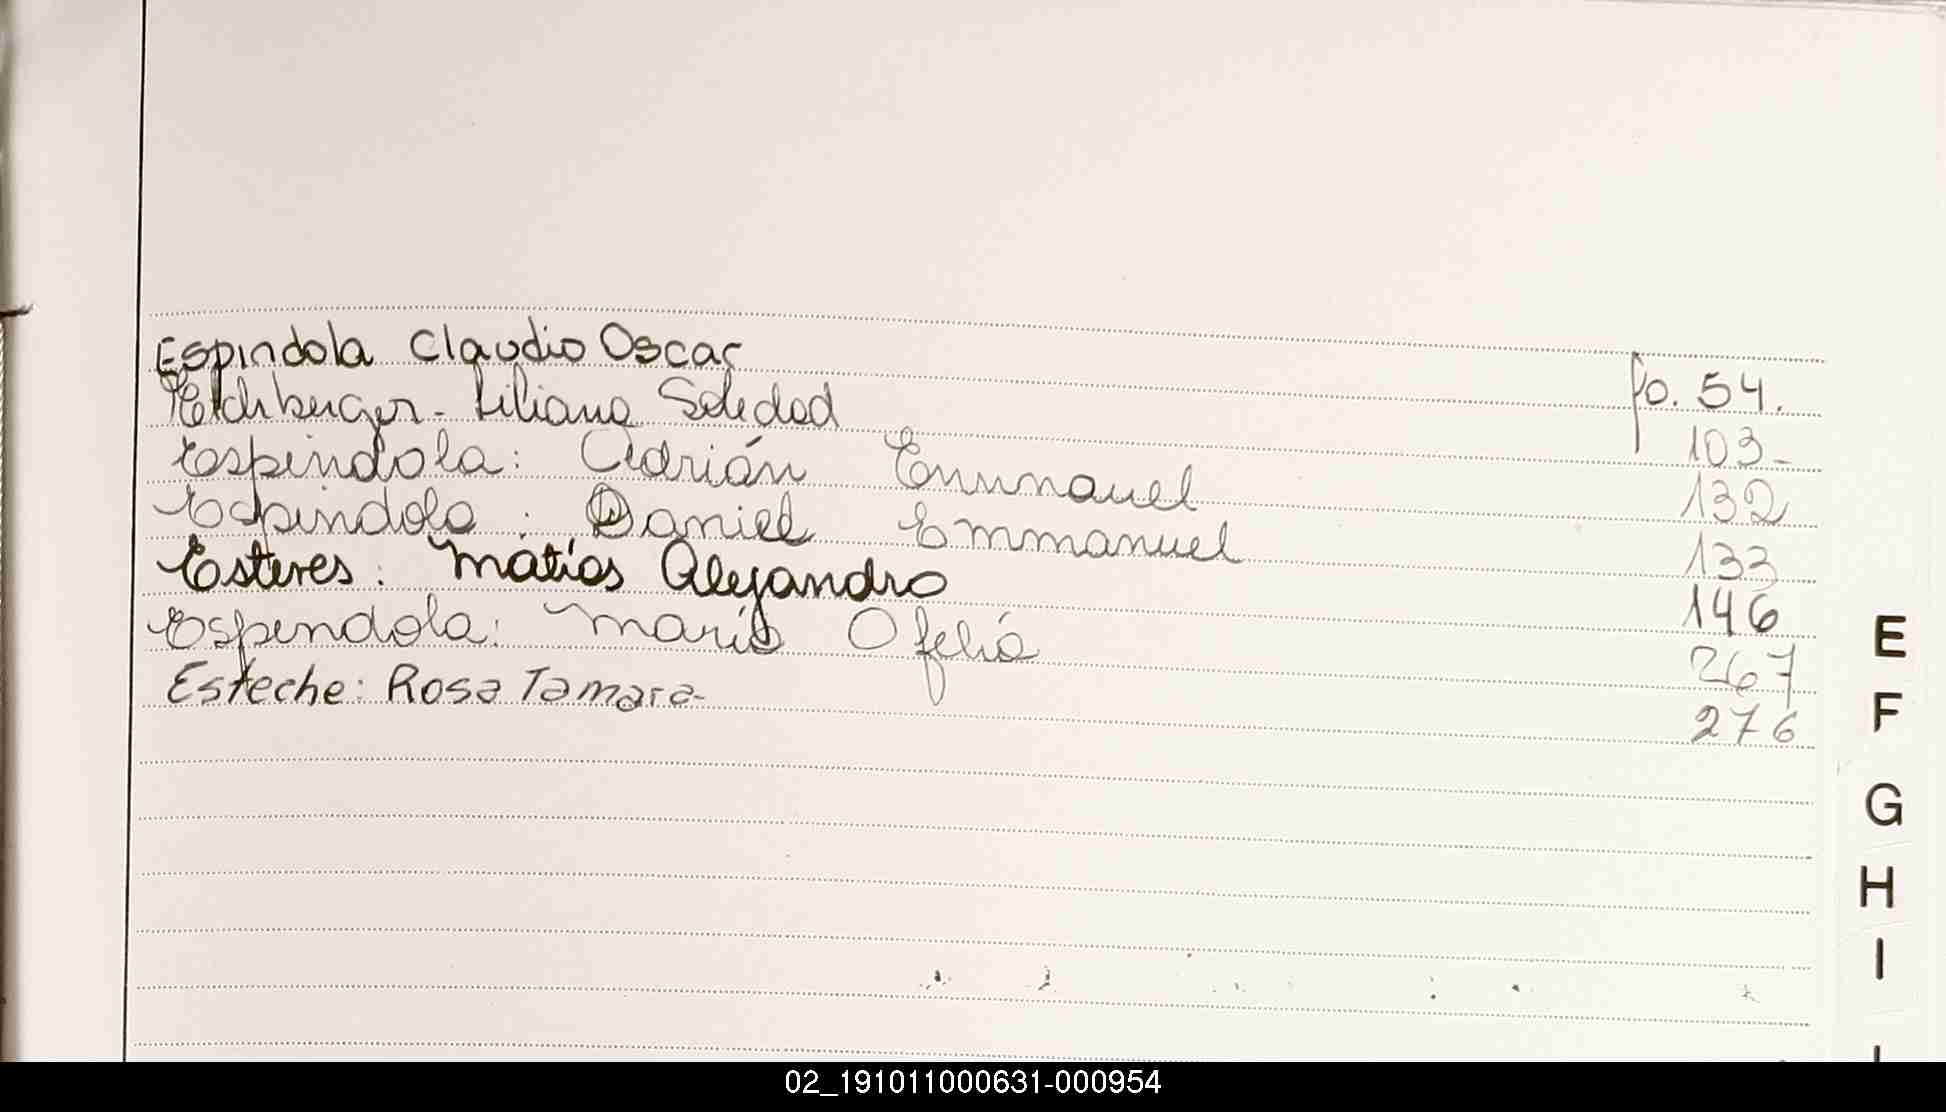 Espindola Claudio Oscar fo. 54.
Eichberger - Liliana Soledad 103-
Espindola: Adrián Emmanuel 132
Espindola: Daniel Emmanuel 133
Esteres: Matías Alejandro 146
Espendola: María Ofelia 267
Esteche: Rosa Tamara- 276
E
F
G
H
I
02_191011000631-000954